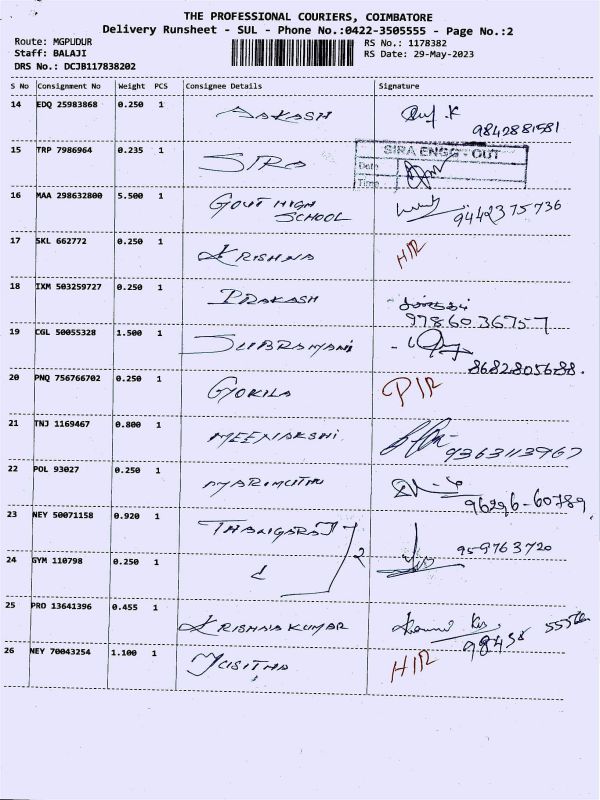 THE PROFESSIONAL COURIERS, COIMBATORE
Delivery Runsheet - SUL - Phone No.:0422-3505555 - Page No.:2
Route: MGPUDUR RS No.: 1178382
Staff: BALAJI RS Date: 29-May-2023
DRS No.: DCJB117838202
S No Consignment No Weight PCS Consignee Details Signature
14 EDQ 25983868 0.250 1 AAKASH
9842881581
15 TRP 7986964 0.235 1 SIRO
SIRA ENGG - OUT
Date
Time
16 MAA 298632800 5.500 1 GOVT HIGH
SCHOOL 9442375736
17 SKL 662772 0.250 1 KRISHNA H/R
18 IXM 503259727 0.250 1 PRAKASH
9786036757
19 CGL 50055328 1.500 1 SUBRAMANI
8682805688.
20 PNQ 756766702 0.250 1 GYOKILA P/R
21 TNJ 1169467 0.800 1 MEENAKSHI 9363113967
22 POL 93027 0.250 1 MARIMUTHU 96296-60789
23 NEY 50071158 0.920 1 THANGARAJ 2 959763720
24 GYM 110798 0.250 1
25 PRO 13641396 0.455 1 KRISHNA KUMAR 98438 55566
26 NEY 70043254 1.100 1 H/R